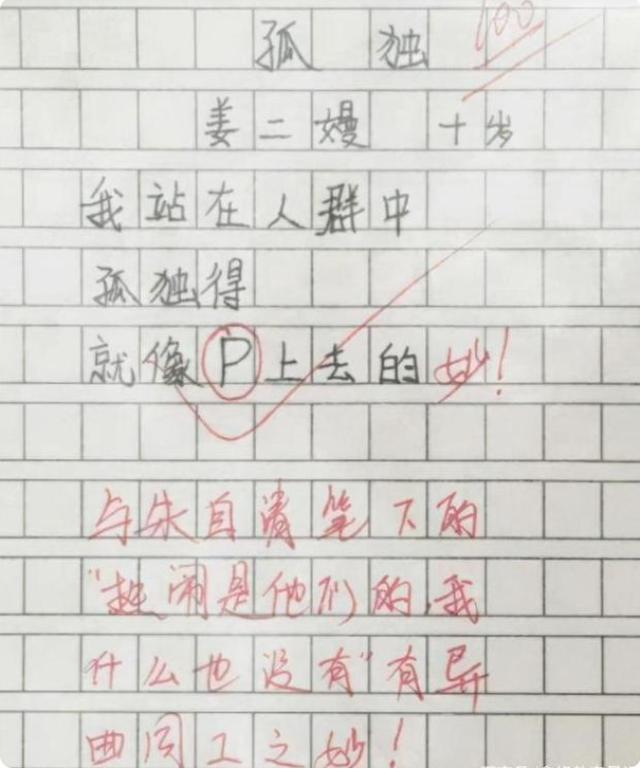 孤独 100
姜二嫚 十岁
我站在人群中
孤独得
就像P上去的 妙!
与朱自清笔下的
"热闹是他们的,我
什么也没有"有异
曲同工之妙!